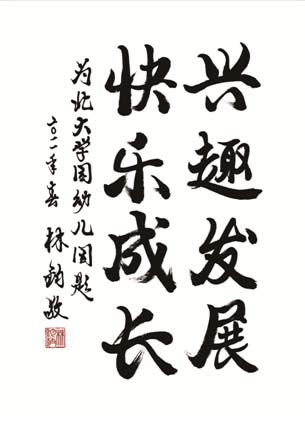 兴趣发展
快乐成长
为北大学园幼儿园题
二〇一一年春 林钧敬